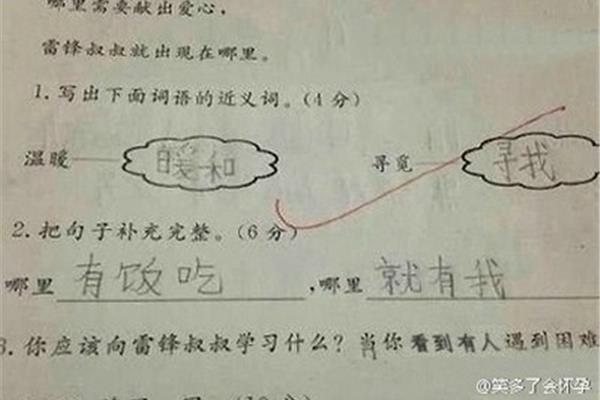 哪里需要献出爱心,
雷锋叔叔就出现在哪里。
1.写出下面词语的近义词。(4分)
温暖 暖和 寻觅 寻找
2.把句子补充完整。(6分)
哪里有饭吃,哪里就有我
3.你应该向雷锋叔叔学习什么?当你看到有人遇到困难
@笑多了会怀孕